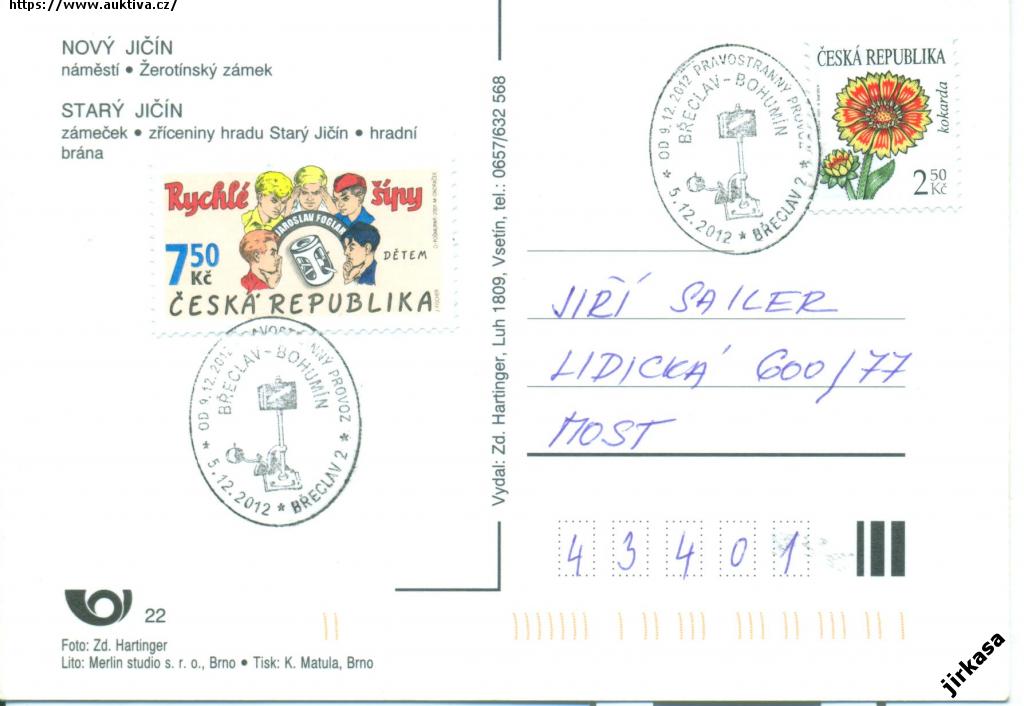 https://www.auktiva.cz/
NOVÝ JIČÍN
náměstí • Žerotínský zámek
STARÝ JIČÍN
zámeček • zříceniny hradu Starý Jičín • hradní
brána
Rychlé šípy
JAROSLAV FOGLAR
7 50 Kč
DĚTEM
ČESKÁ REPUBLIKA
* OD 9.12.2012 PRAVOSTRANNÝ PROVOZ *
BŘECLAV - BOHUMÍN
5.12.2012 * BŘECLAV 2
22
Foto: Zd. Hartinger
Lito: Merlin studio s. r. o., Brno • Tisk: K. Matula, Brno
Vydal: Zd. Hartinger, Luh 1809, Vsetín, tel.: 0657/632 568
* OD 9.12.2012 PRAVOSTRANNÝ PROVOZ
BŘECLAV - BOHUMÍN
5.12.2012 * BŘECLAV 2 *
ČESKÁ REPUBLIKA
kokarda
2 50 Kč
JIŘÍ SAILER
LIDICKÁ 600/77
MOST
43401
jirkasa